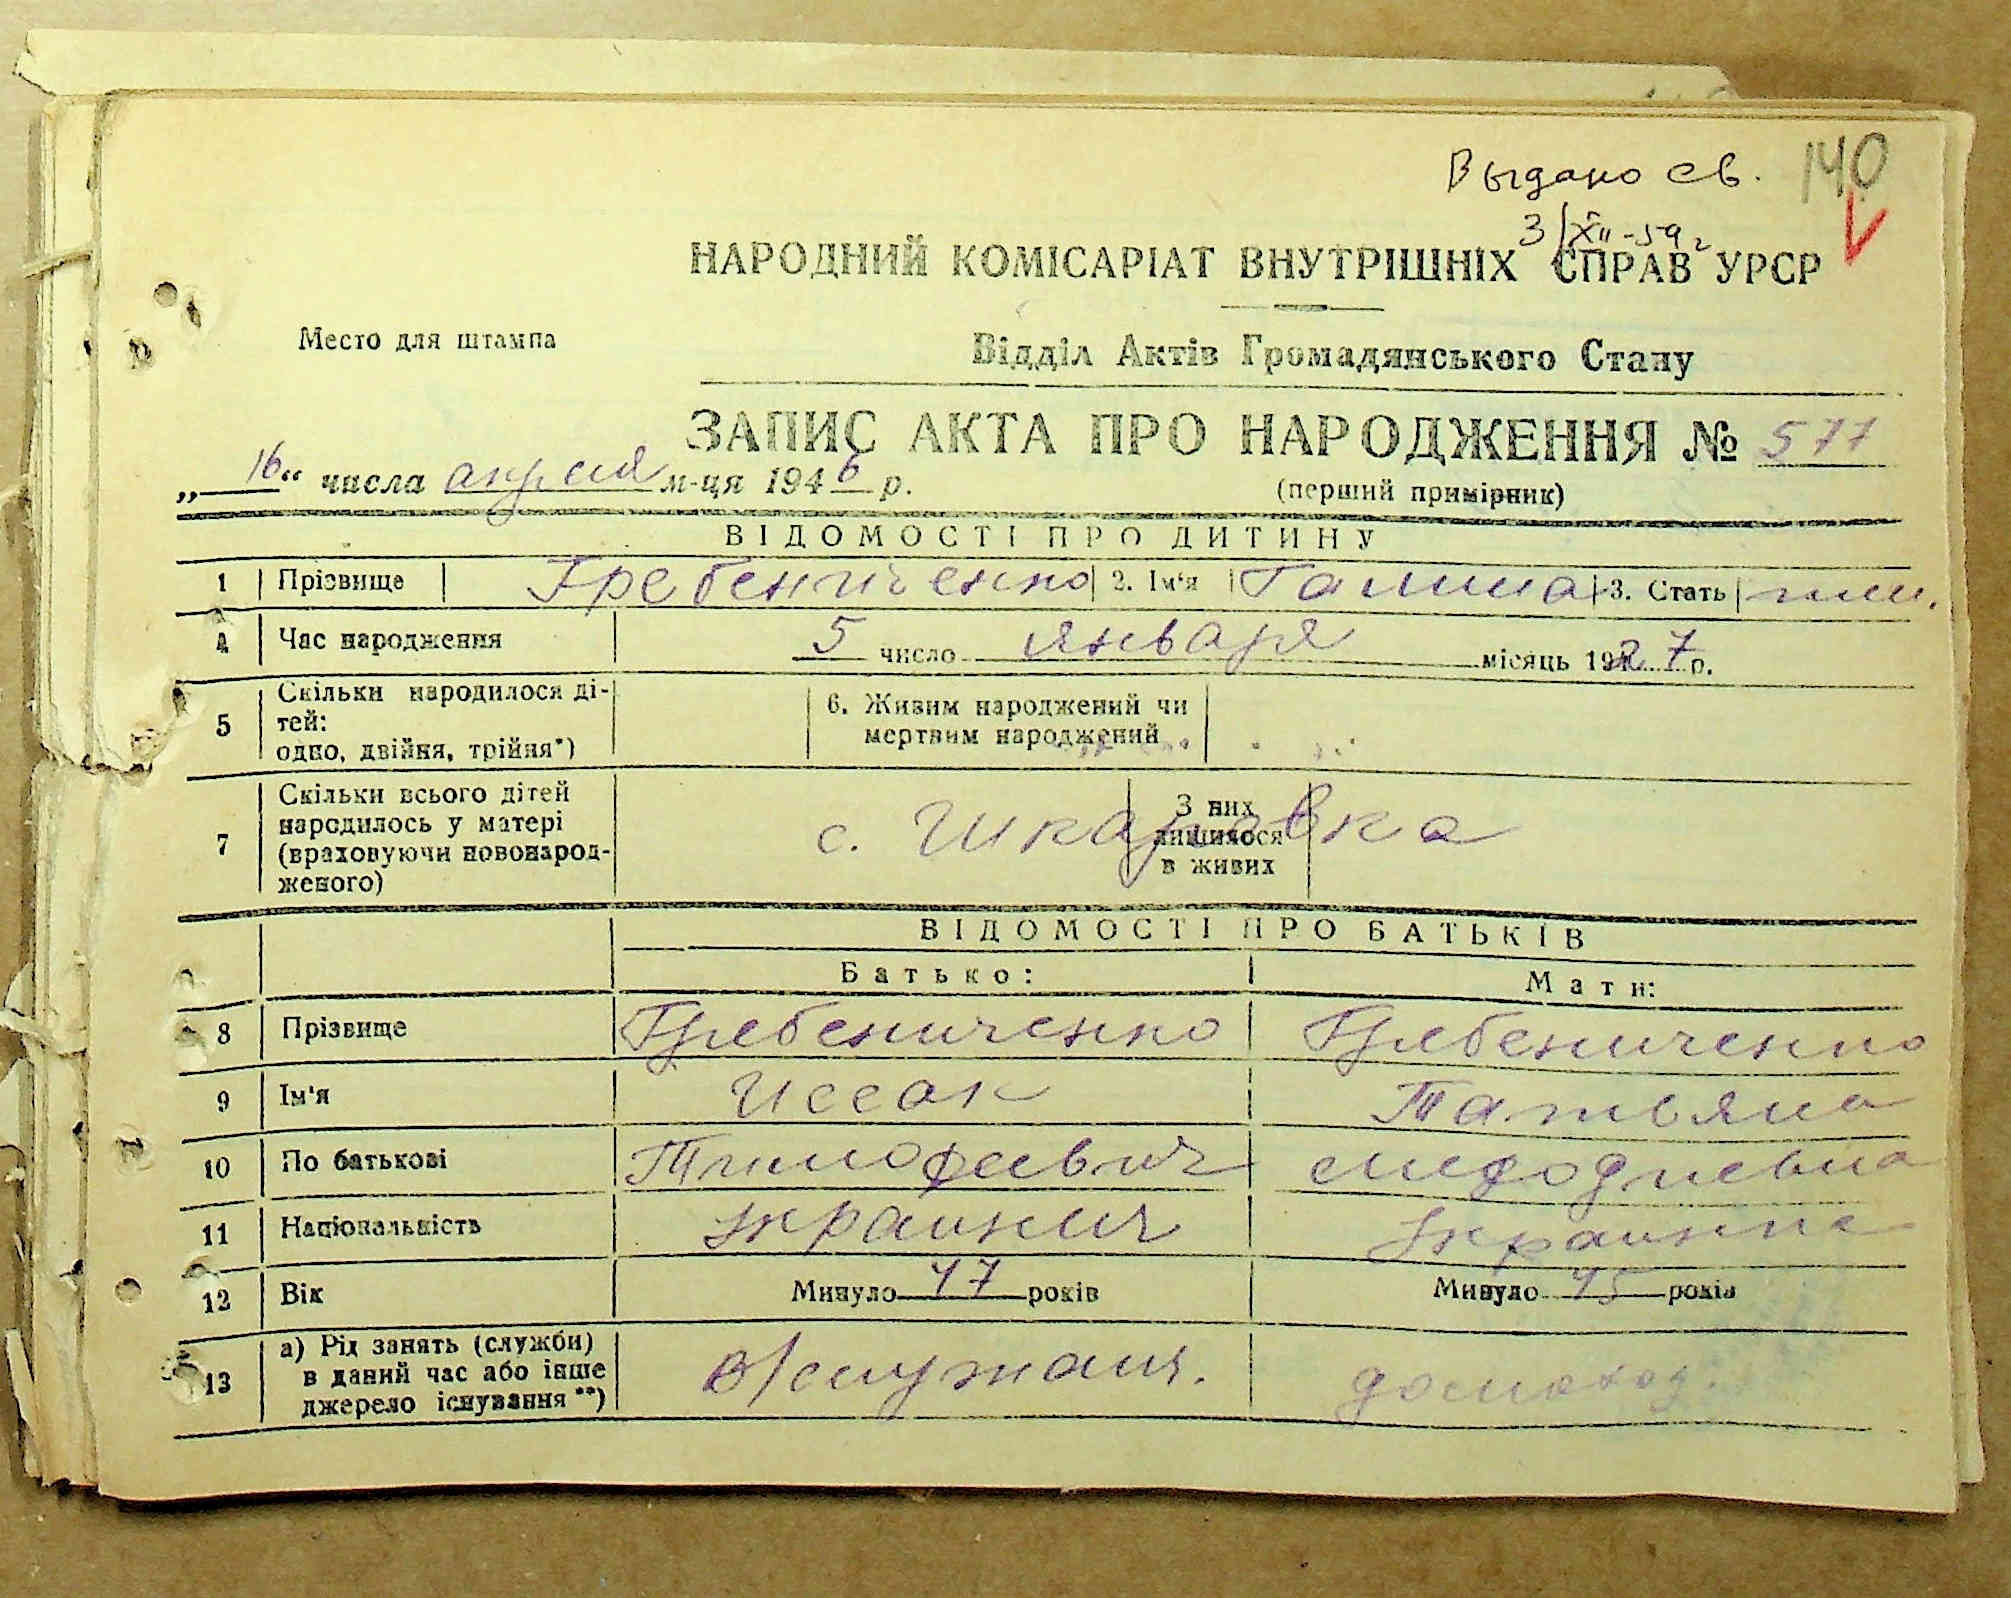 Выдано св. 140
3/XII-59г
НАРОДНИЙ КОМІСАРІАТ ВНУТРІШНІХ СПРАВ УРСР
Место для штампа
Відділ Актів Громадянського Стану
ЗАПИС АКТА ПРО НАРОДЖЕННЯ № 577
„16“ числа апреля м-ця 1946 р.
(перший примірник)
ВІДОМОСТІ ПРО ДИТИНУ
1 Прізвище Гребениченко 2. Ім'я Галина 3. Стать
4 Час народження 5 число января місяць 1927 р.
5 Скільки народилося ді-
тей:
одно, двійня, трійня*)
6. Живим народжений чи
мертвим народжений
7 Скільки всього дітей
народилось у матері
(враховуючи новонарод-
женого)
с. Шкаровка
З них
лишилося
в живих
ВІДОМОСТІ ПРО БАТЬКІВ
Батько: Мати:
8 Прізвище Гребениченко Гребениченко
9 Ім'я Иссак Татьяна
10 По батькові Тимофеевич
11 Національність Украинец Украинка
12 Вік Минуло 47 років Минуло 45 років
13 а) Рід занять (служби)
в даний час або інше
джерело існування**)
в/служащ. домохоз.